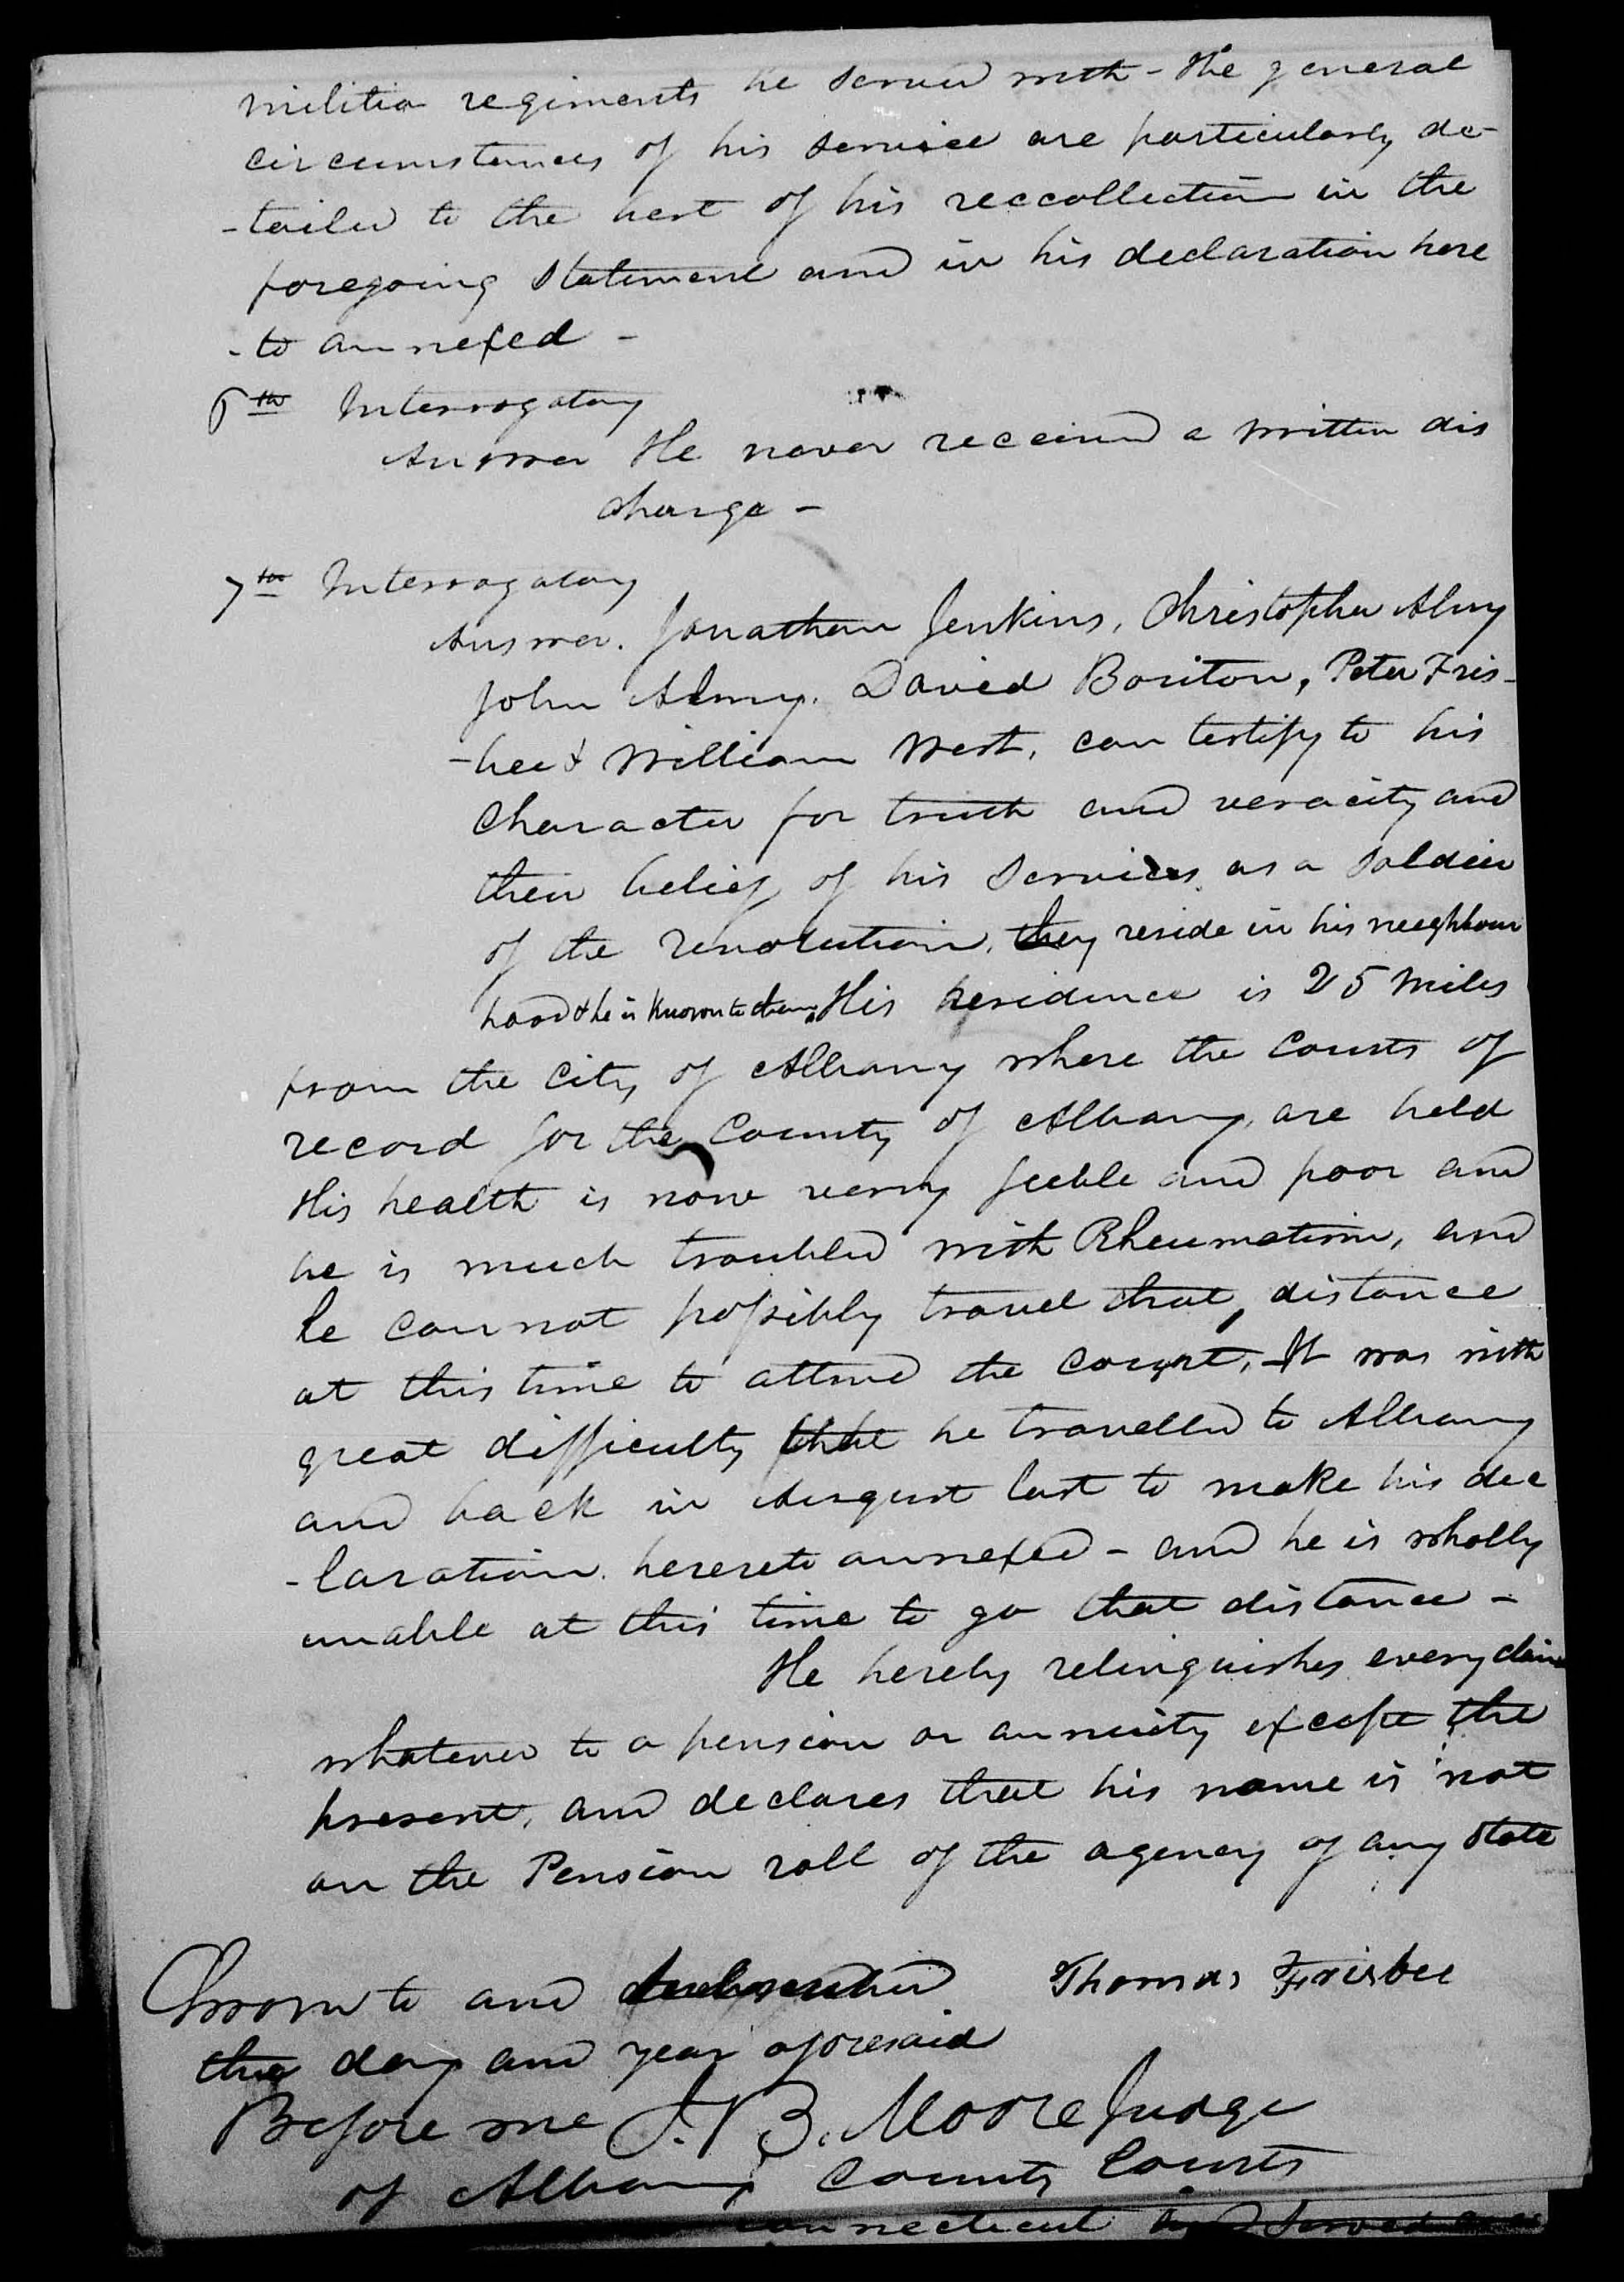 militia regiments he served with - the general
circumstances of his service are particularly de-
-tailed to the best of his reccollection in the
foregoing statement and in his declaration here
-to annexed -
6th Interrogatory
Answer He never received a written dis
charge -
7th Interrogatory
Answer. Jonathan Jenkins, Christopher Almy
John Almy. David Bouton, Peter Fris-
-bee & William West, can testify to his
Character for truth and veracity and
their belief of his services as a soldier
of the revolution, they reside in his neighbour
hood & he is known to them. His residence is 25 miles
from the City of Albany where the Courts of
record for the County of Albany, are held
His health is now verry feeble and poor and
he is much troubled with Rheumatism, and
he cannot possibly travel that distance
at this time to attend the court, It was with
great difficulty that he travelled to Albany
and back in August last to make his dec
-laration hereto annexed - and he is wholly
unable at this time to go that distance -
He hereby relinquishes every claim
whatever to a pension or annuity except the
present, and declares that his name is not
on the Pension roll of the agency of any state
Sworn to and subscribed Thomas Frisbee
the day and year aforesaid
Before me J. B. Moore Judge
of Albany County Courts
connecticut